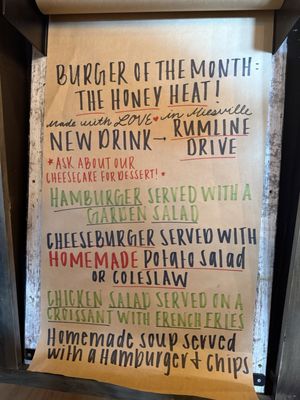 BURGER OF THE MONTH:
THE HONEY HEAT!
made with LOVE in Miesville
NEW DRINK → RUMLINE
DRIVE
*ASK ABOUT OUR
CHEESECAKE FOR DESSERT!*
HAMBURGER SERVED WITH A
GARDEN SALAD
CHEESEBURGER SERVED WITH
HOMEMADE POTATO SALAD
OR COLESLAW
CHICKEN SALAD SERVED ON A
CROISSANT WITH FRENCH FRIES
Homemade soup served
with a Hamburger + chips